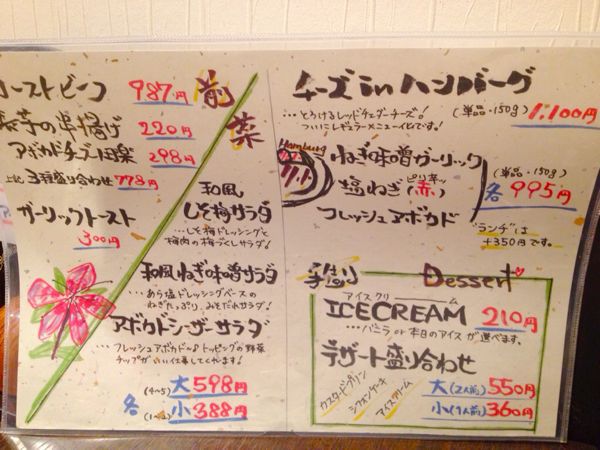 ローストビーフ 987円
前菜
長芋の串揚げ 220円
アボカドチーズ田楽 298円
上記 3種盛り合わせ 778円
ガーリックトースト
300円
和風
しそ梅サラダ
…しそ梅ドレッシングと
梅肉の梅づくしサラダ!
和風ねぎ味噌サラダ
…あら塩ドレッシングベースの
ねぎたっぷり、みそだれサラダ!
アボカドシーザーサラダ
…フレッシュアボカド〜♪トッピングの野菜
チップがいい仕事してくれます!
各
(4〜5) 大 598円
(1〜3) 小 388円
チーズinハンバーグ
…とろけるレッドチェダーチーズ!
ついにレギュラーメニュー化です。
(単品・150g) 1,100円
Hamburg
ねぎ味噌ガーリック
塩ねぎ(ピリ辛ッ 赤)
フレッシュアボカド
(単品・150g)
各 995円
"ランチ"は
+350円です。
手造り Dessert
アイスクリーム
ICECREAM 210円
…バニラ or 本日のアイスが選べます。
デザート盛り合わせ
カスタードプリン
シフォンケーキ
アイスクリーム
大(2人前) 550円
小(1人前) 360円